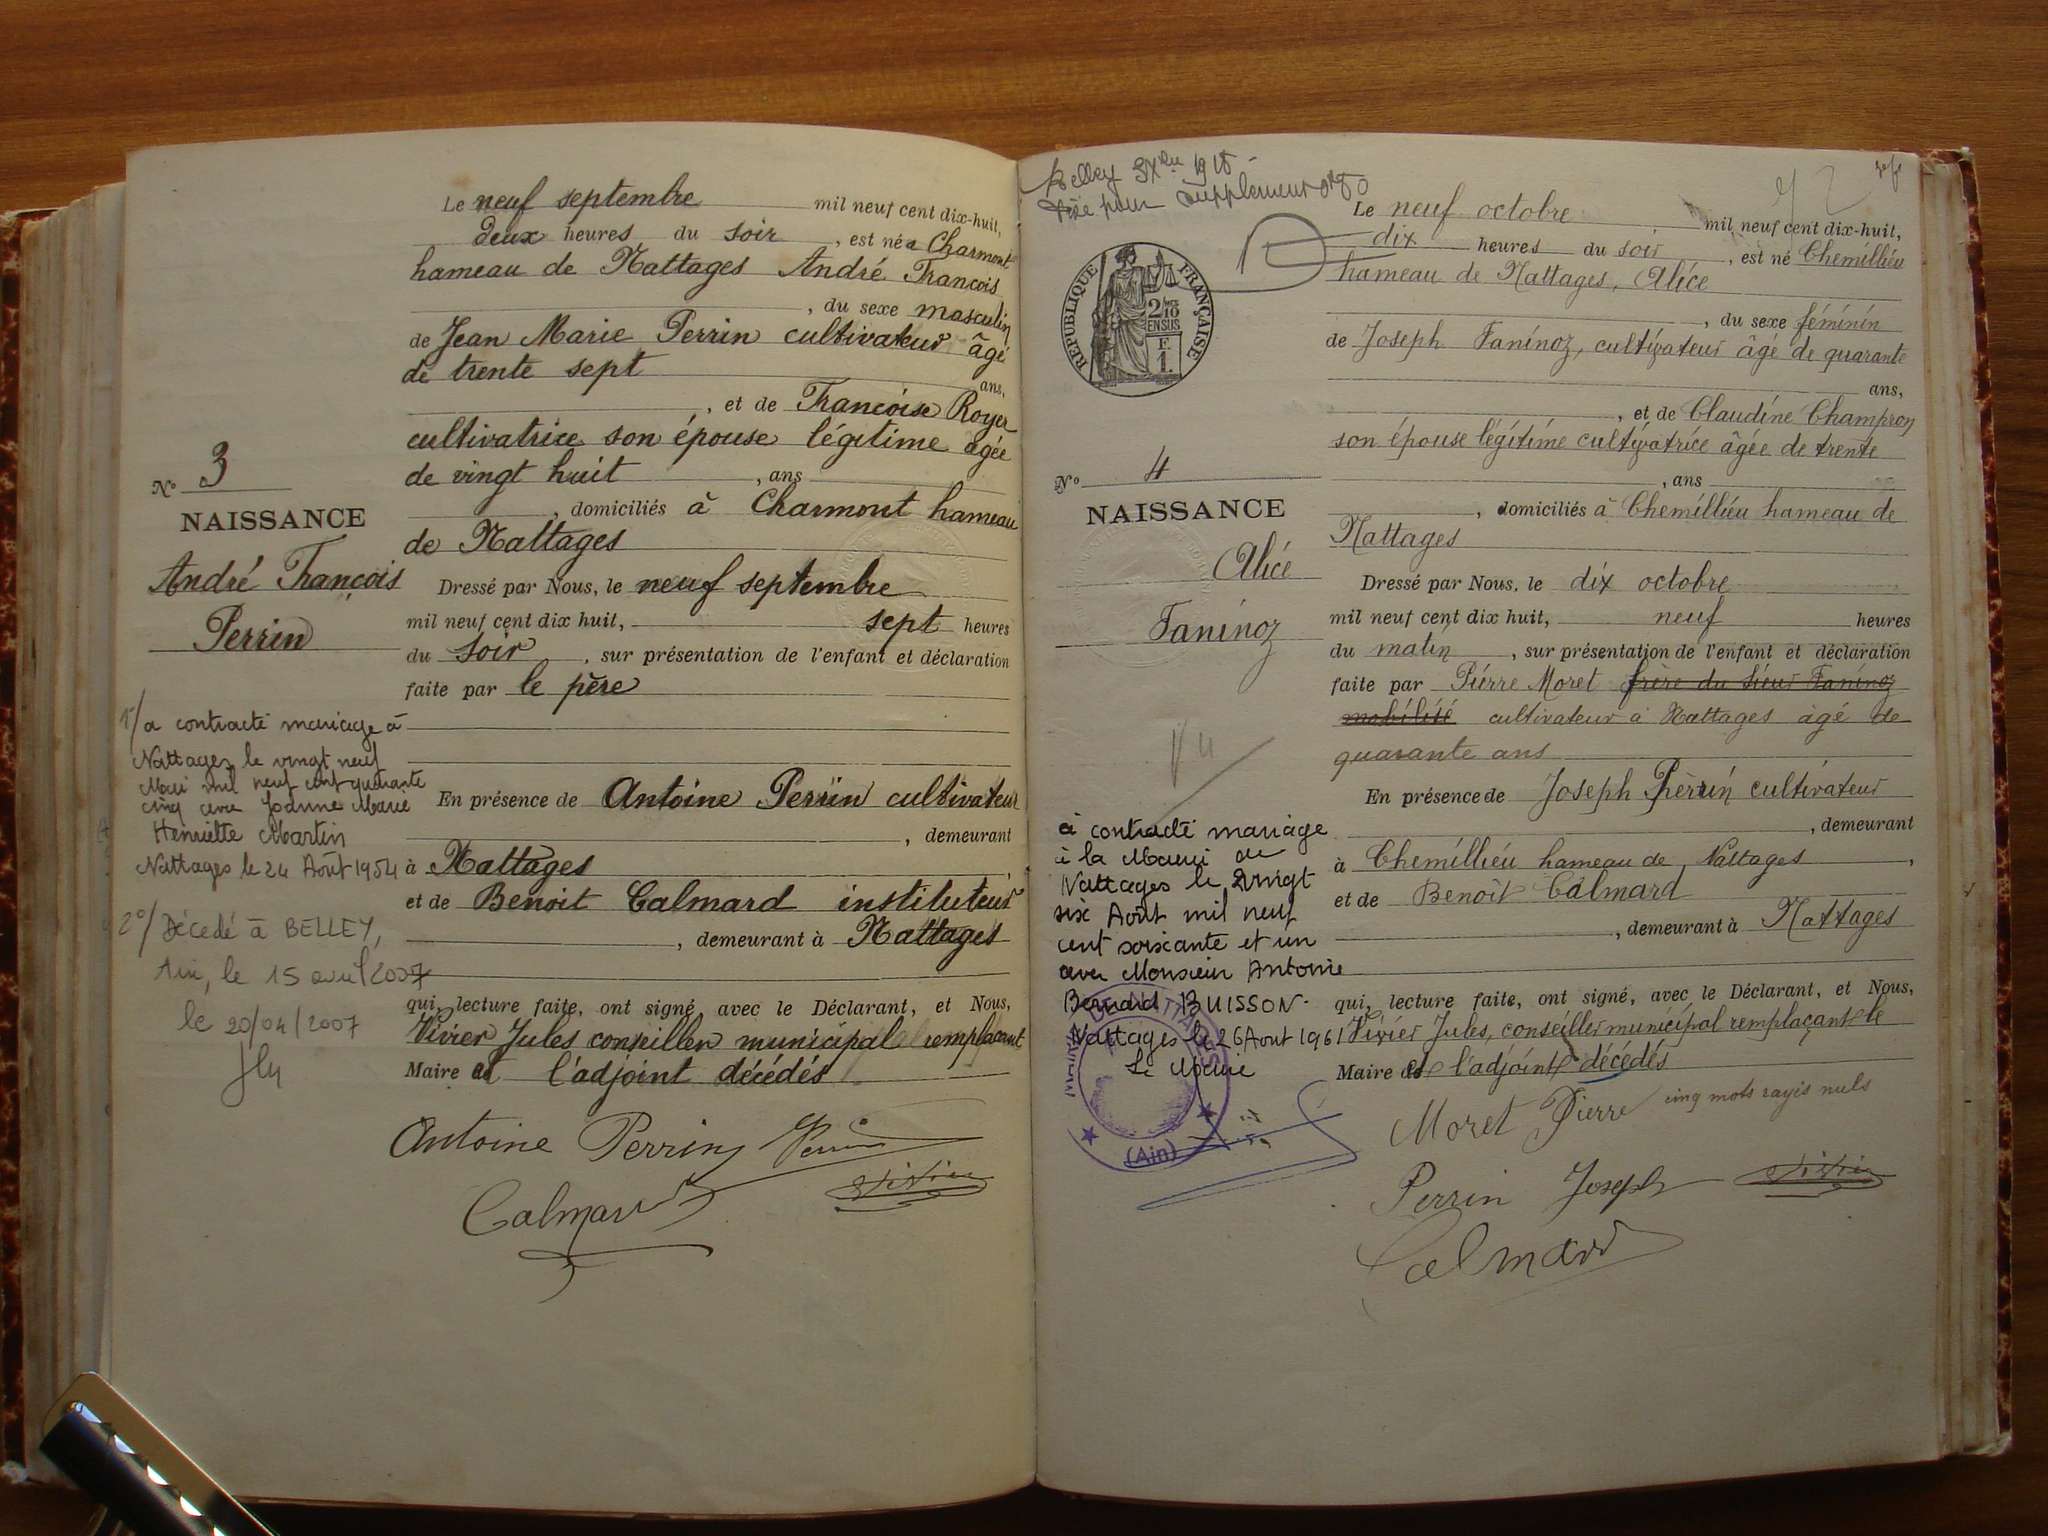 Le neuf septembre mil neuf cent dix-huit,
deux heures du soir, est né à Charmont
hameau de Nattages André François
, du sexe masculin
de Jean Marie Perrin cultivateur âgé
de trente sept ans,
, et de Françoise Royer
cultivatrice son épouse légitime âgée
de vingt huit, ans
, domiciliés à Charmont hameau
de Nattages
Dressé par Nous, le neuf septembre
mil neuf cent dix huit, sept heures
du soir, sur présentation de l'enfant et déclaration
faite par le père
En présence de Antoine Perrin cultivateur
, demeurant
à Nattages
et de Benoit Calmard instituteur
, demeurant à Nattages
qui, lecture faite, ont signé avec le Déclarant, et Nous,
Vivier Jules conseiller municipal remplaçant
Maire et l'adjoint décédés
Antoine Perrin Perrin
Calmard Vivier
No 3
NAISSANCE
André François
Perrin
1°/ a contracté mariage à
Nattages le vingt neuf
Mai mil neuf cent quarante
cinq avec Jeanne Marie
Henriette Martin
Nattages le 24 Août 1954
2°/ Décédé à BELLEY,
Ain, le 15 avril 2007
le 20/04/2007
Belley 1918
pour supplément
RÉPUBLIQUE FRANÇAISE
2/10
EN SUS
F.
1.
No 4
NAISSANCE
Alice
Faninoz
a contracté mariage
à la Mairie de
Nattages le vingt
six Août mil neuf
cent soixante et un
avec Monsieur Antoine
Bernard BUISSON.
Nattages le 26 Aout 1961
Le Maire
(Ain)
Le neuf octobre mil neuf cent dix-huit,
dix heures du soir, est né Chemillieu
hameau de Nattages, Alice
, du sexe féminin
de Joseph Faninoz, cultivateur âgé de quarante
ans,
, et de Claudine Champron
son épouse légitime cultivatrice âgée de trente
, ans
, domiciliés à Chemillieu hameau de
Nattages
Dressé par Nous, le dix octobre
mil neuf cent dix huit, neuf heures
du matin, sur présentation de l'enfant et déclaration
faite par Pierre Moret frère du sieur Faninoz
mobilisé cultivateur à Nattages âgé de
quarante ans
En présence de Joseph Perrin cultivateur
, demeurant
à Chemillieu hameau de Nattages,
et de Benoit Calmard
, demeurant à Nattages
qui, lecture faite, ont signé, avec le Déclarant, et Nous,
Vivier Jules, conseiller municipal remplaçant le
Maire et l'adjoint décédés
cinq mots rayés nuls
Moret Pierre
Perrin Joseph Vivier
Calmard